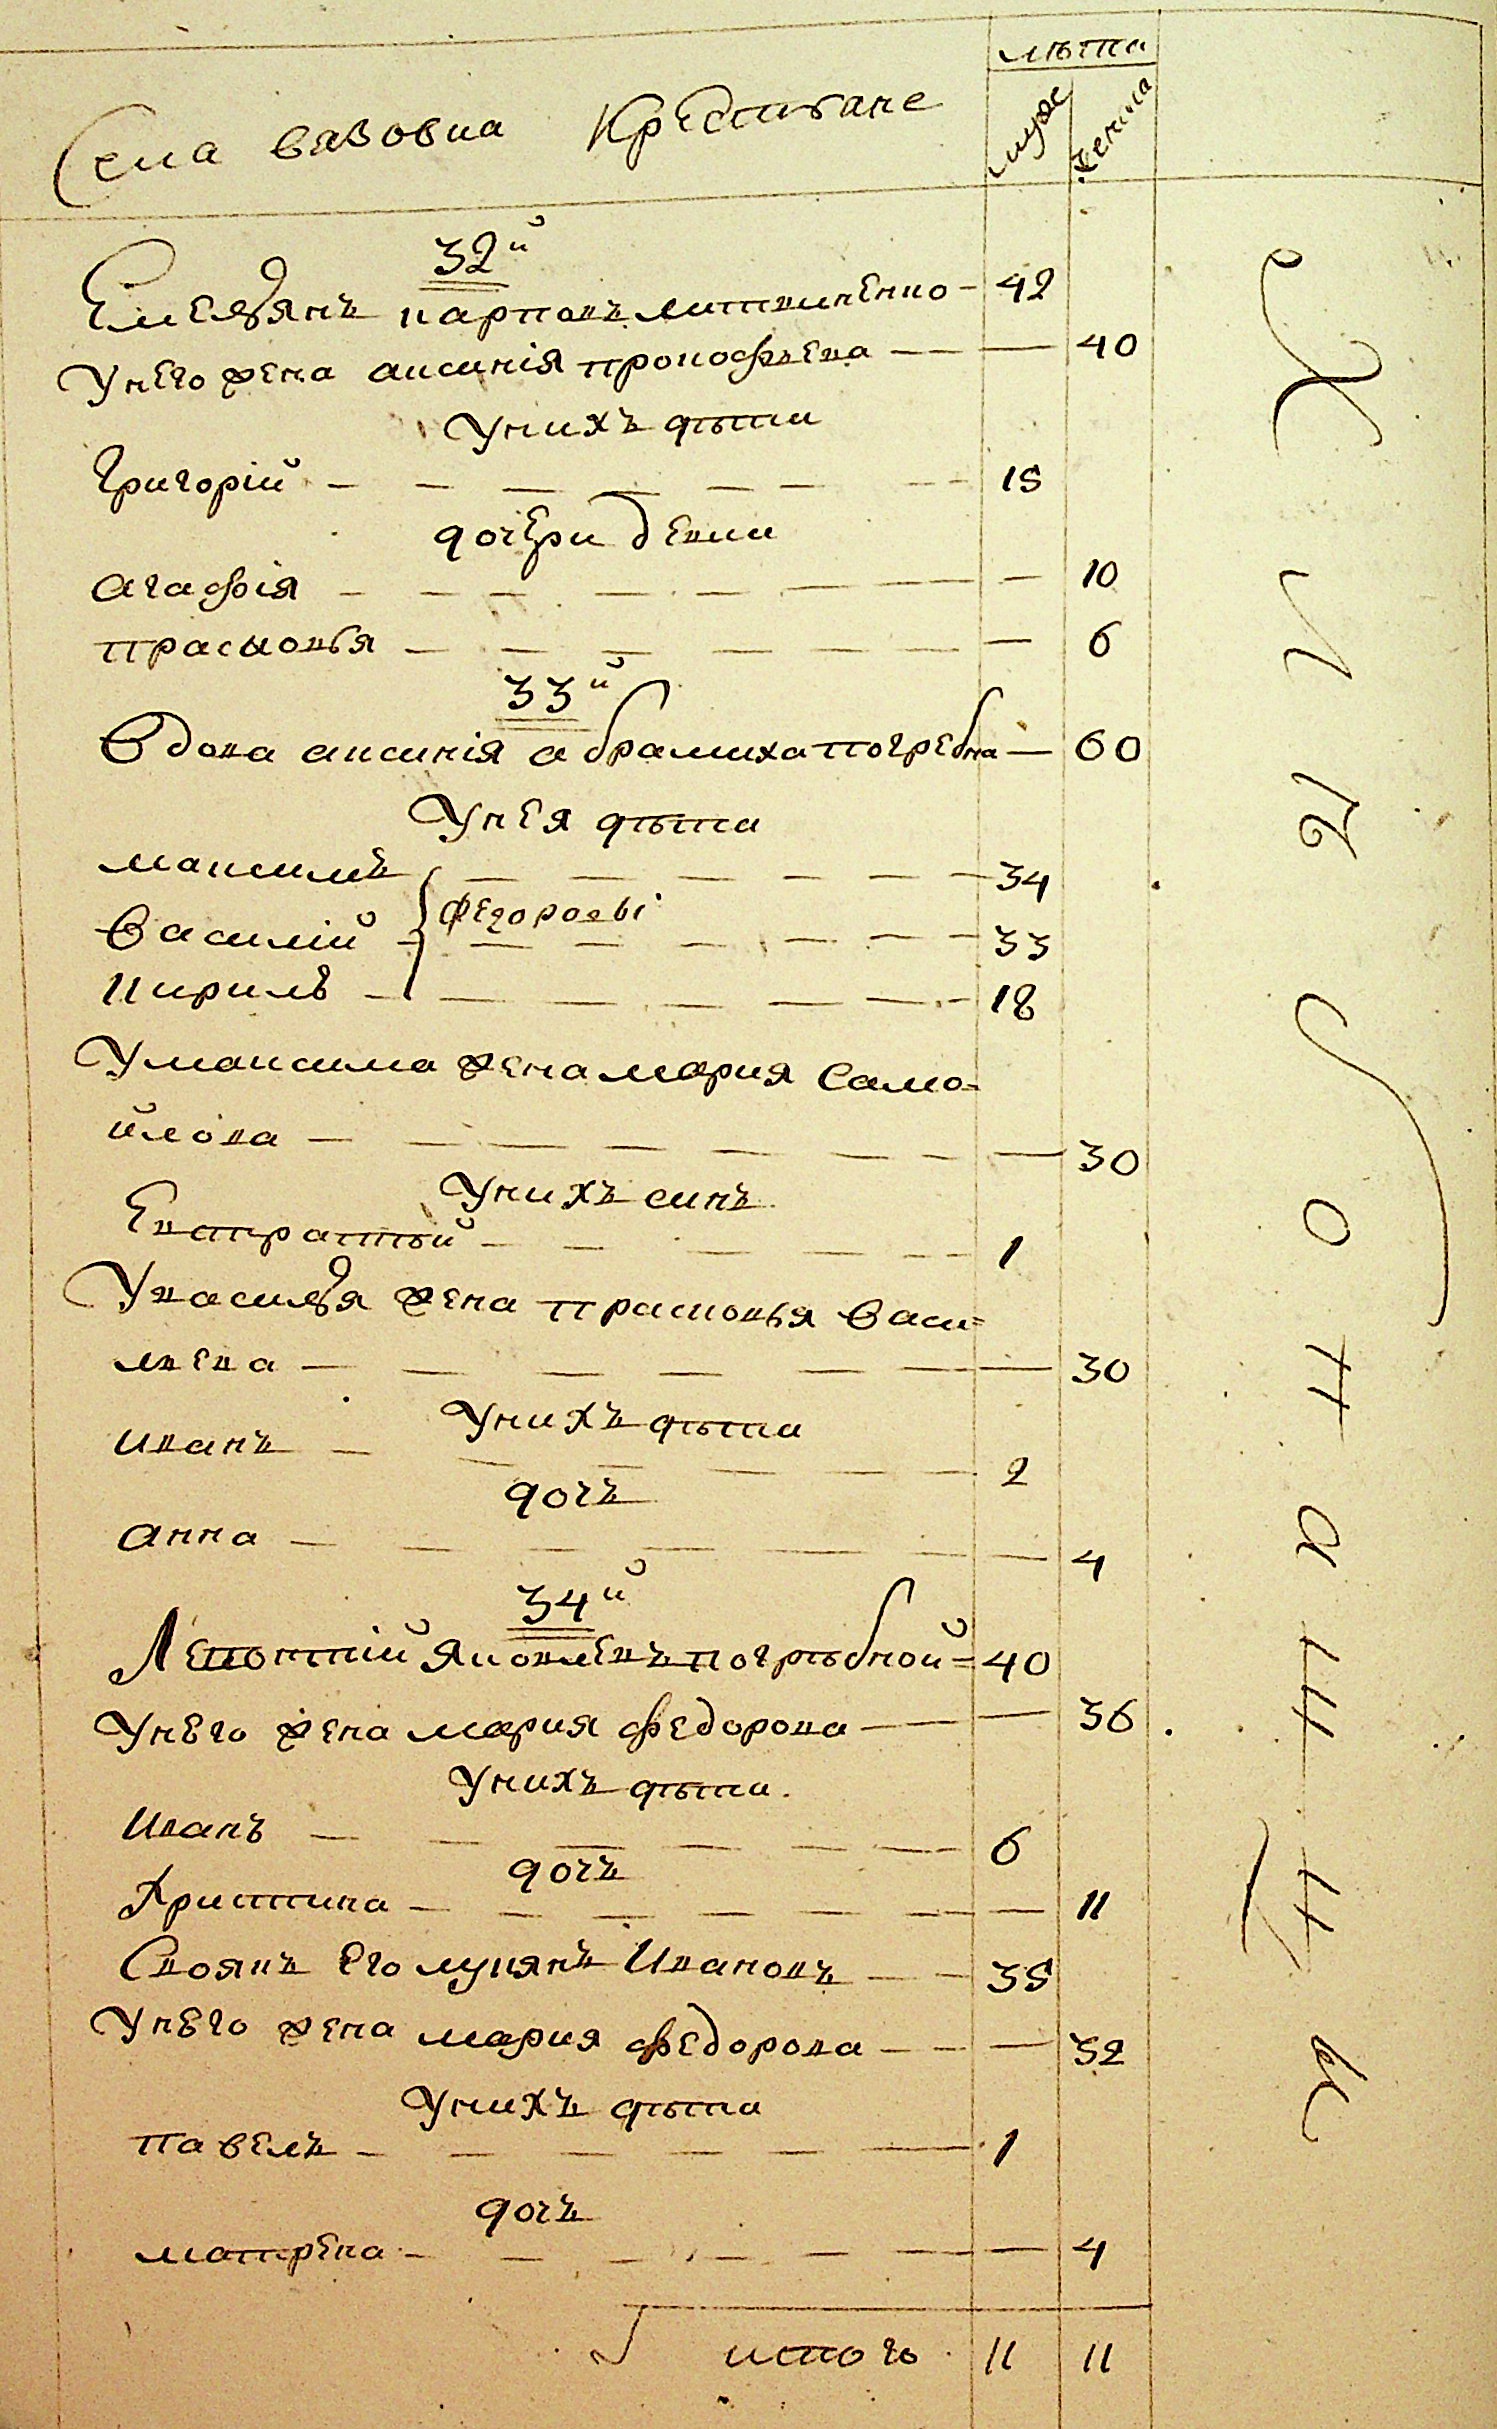 лѣта
Села вязовка Крестьяне
муж
женска
32й
Емельянъ карповъ литвиненко 42
У него жена аксинія прокофьева 40
У нихъ дѣти
Григорій 15
дочери девки
агафія 10
прасковья 6
33й
Вдова аксинія абрамиха погребна 60
У нея дѣти
максимъ 34
Федоровы
Василій 33
Кирилъ 18
У максима жена мария само=
йлова 30
У нихъ синъ
Евстратѣй 1
У василья жена прасковья васи=
льева 30
У нихъ дѣти
Иванъ 2
дочь
анна 4
34й
Леонтій Яковлевъ погрѣбной 40
У него жена мария федорова 36
У нихъ дѣти
Иванъ 6
дочъ
Христина 11
Своякъ Его лукянъ Ивановъ 35
У него жена мария федорова 32
У нихъ дѣти
павелъ 1
дочъ
матрена 4
итого 11 11